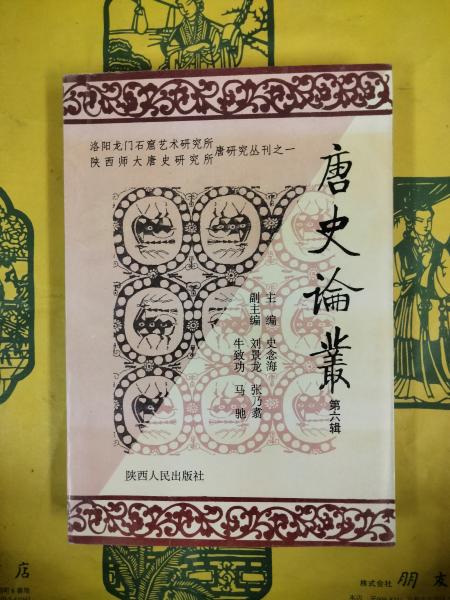 洛阳龙门石窟艺术研究所
陕西师大唐史研究所
唐研究丛刊之一
唐史论叢
第六辑
主编 史念海
副主编 刘景龙 张乃翥
牛致功 马驰
陕西人民出版社
店
株式会社 朋友
本店